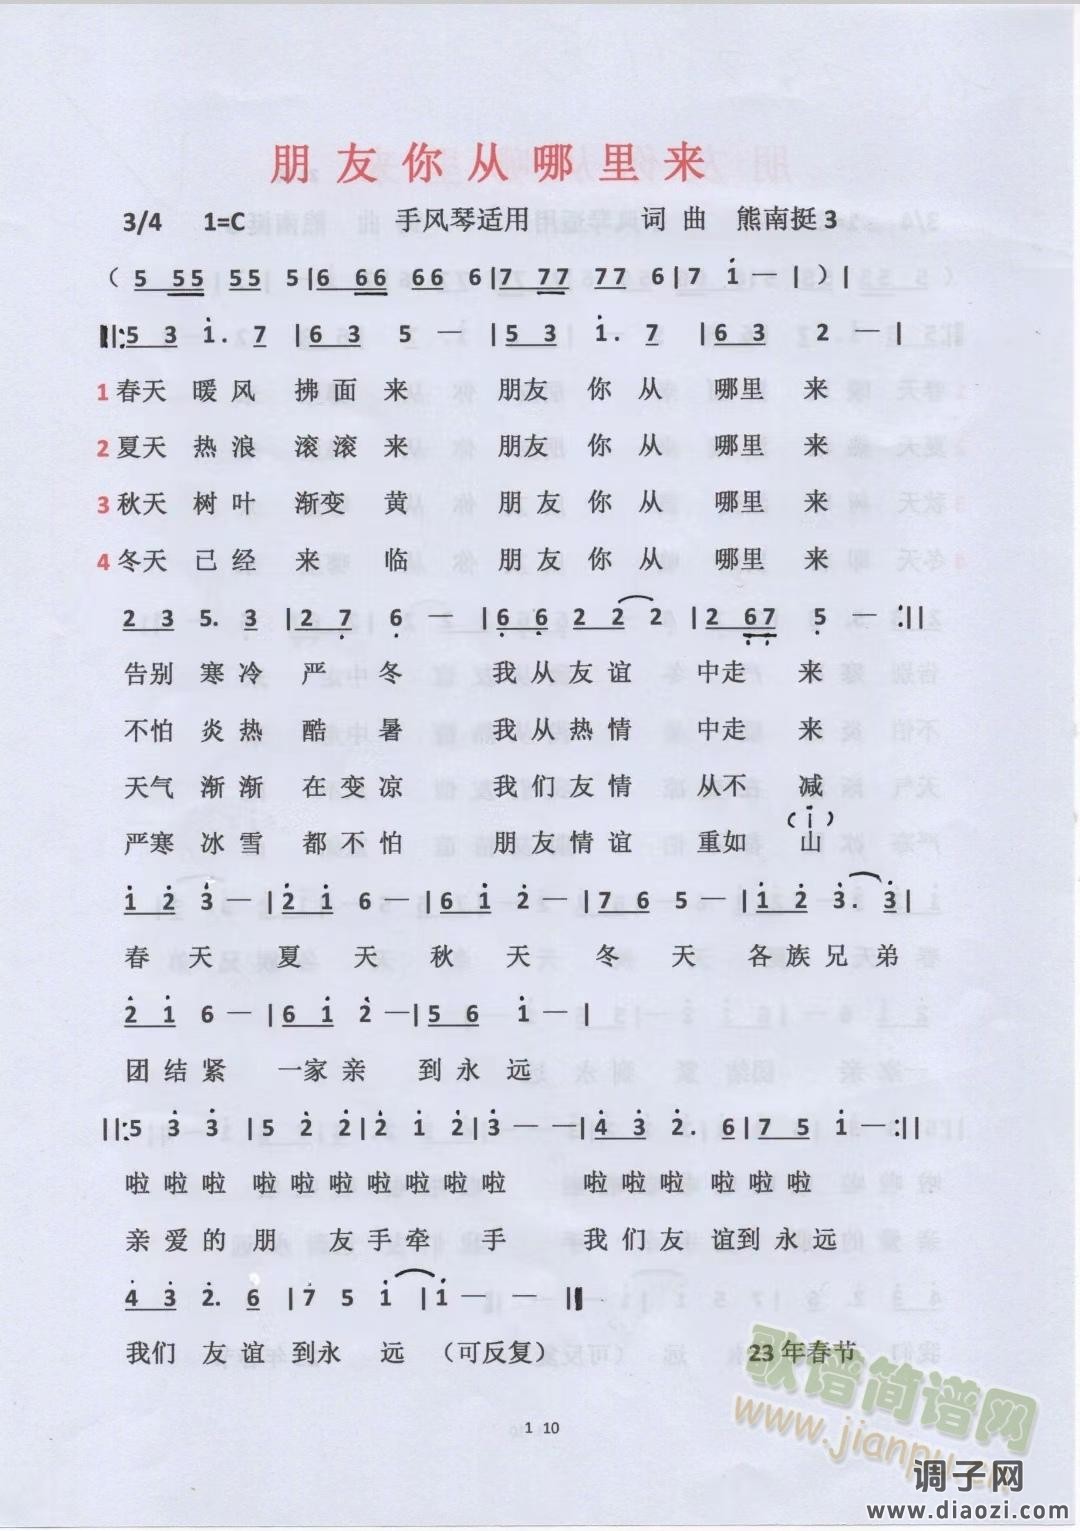 朋友你从哪里来
3/4 1=C 手风琴适用 词曲 熊南挺3
( 5 55 55 5 | 6 66 66 6 | 7 77 77 6 | 7 i — ) |
||: 5 3 i. 7 | 6 3 5 — | 5 3 i. 7 | 6 3 2 — |
1 春天 暖风 拂面来 朋友 你从 哪里来
2 夏天 热浪 滚滚来 朋友 你从 哪里来
3 秋天 树叶 渐变黄 朋友 你从 哪里来
4 冬天 已经 来临 朋友 你从 哪里来
2 3 5. 3 | 2 7 6 — | 6 6 2 2 2 | 2 67 5 — :||
告别 寒冷 严冬 我从友谊 中走来
不怕 炎热 酷暑 我从热情 中走来
天气 渐渐 在变凉 我们友情 从不减
(i)
严寒 冰雪 都不怕 朋友情谊 重如山
1 2 3 — | 2 1 6 — | 6 1 2 — | 7 6 5 — | 1 2 3 3 |
春天 夏天 秋天 冬天 各族兄弟
2 1 6 — | 6 1 2 — | 5 6 1 — |
团结紧 一家亲 到永远
||: 5 3 3 | 5 2 2 | 2 1 2 | 3 — — | 4 3 2. 6 | 7 5 1 — :||
啦啦啦 啦啦啦啦啦啦啦 啦啦啦啦啦啦
亲爱的朋 友手牵手 我们友谊到永远
4 3 2. 6 | 7 5 1 | 1 — — ||
我们 友谊 到永远 (可反复) 23年春节
1 10
歌谱简谱网
www.jianpu.cn
调子网
www.diaozi.com